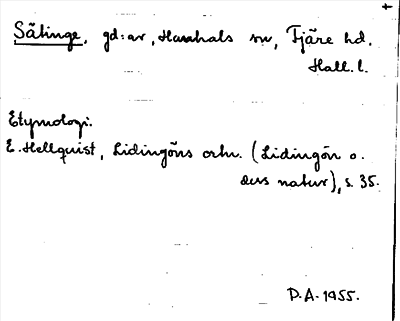 Sätinge, gd:ar, Hanhals sn, Fjäre hd.
Hall. l.
Etymologi.
E. Hellquist, Lidingöns ortn. (Lidingön o.
dess natur), s. 35.
D.A. 1955.